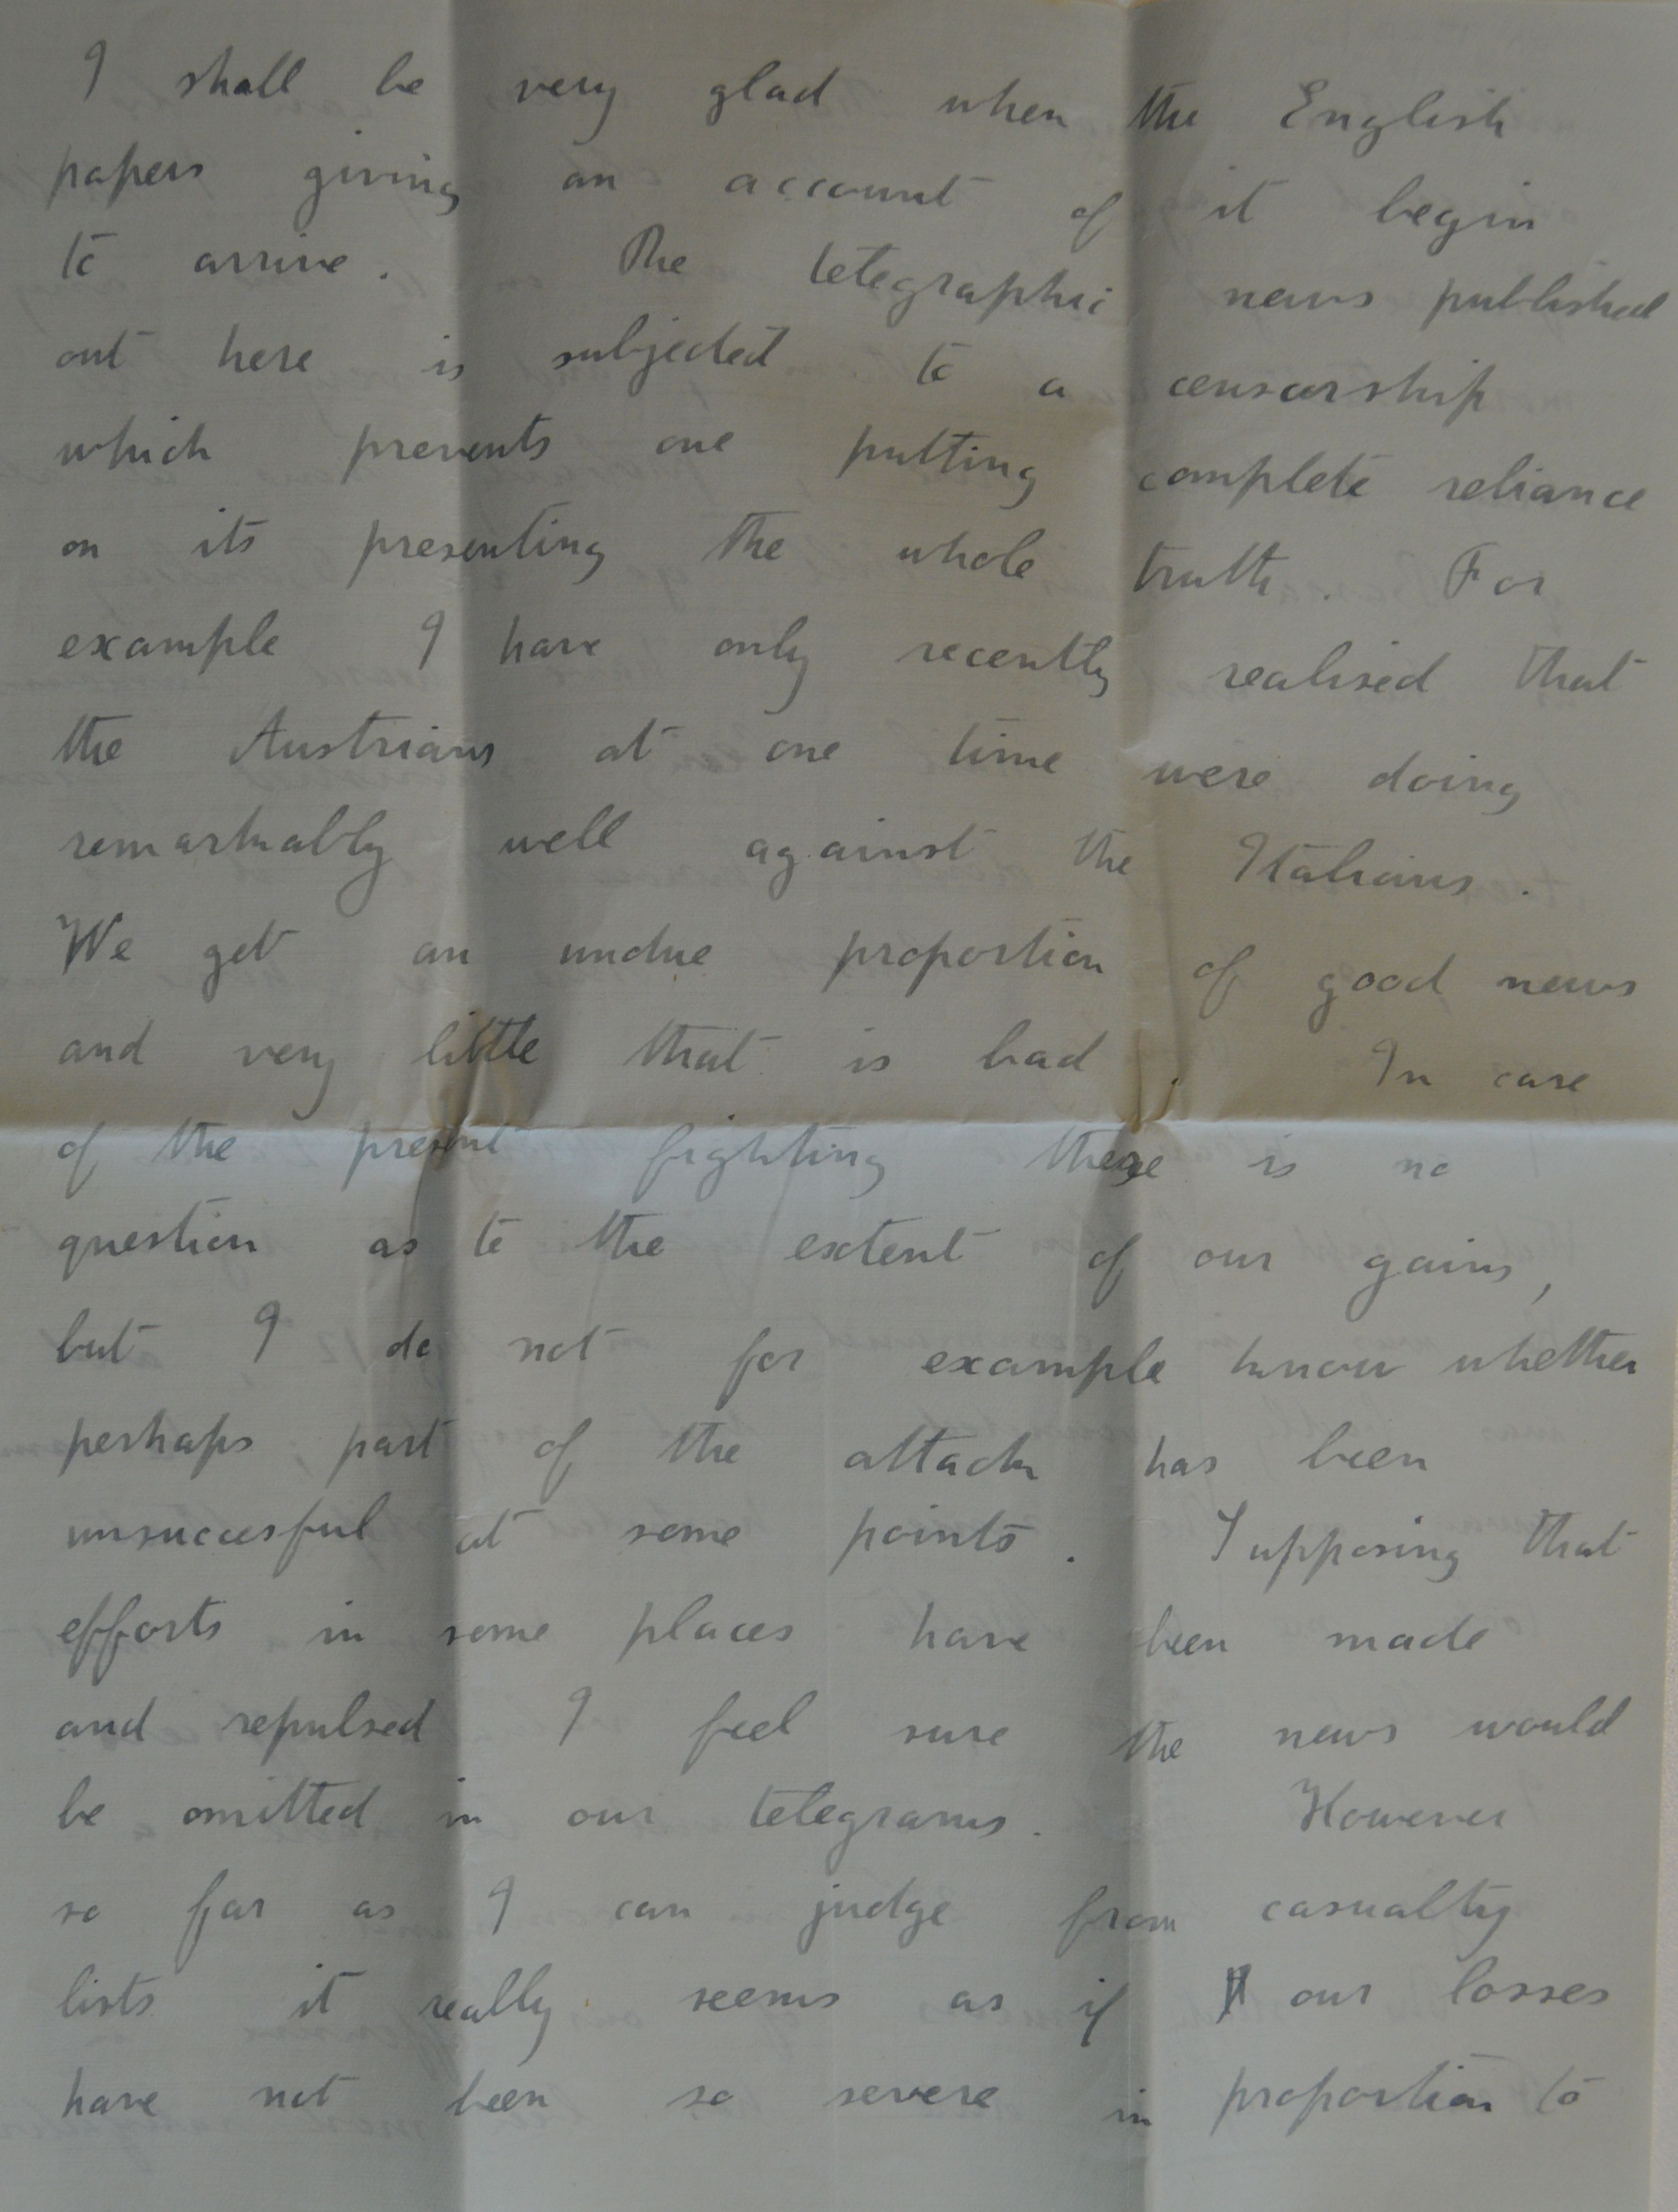 I shall be very glad when the English
papers giving an account of it begin
to arrive. The telegraphic news published
out here is subjected to a censorship
which prevents one putting complete reliance
on its presenting the whole truth. For
example I have only recently realised that
the Austrians at one time were doing
remarkably well against the Italians.
We get an undue proportion of good news
and very little that is bad. In case
of the present fighting there is no
question as to the extent of our gains,
but I do not for example know whether
perhaps part of the attack has been
unsuccesful at some points. Supposing that
efforts in some places have been made
and repulsed I feel sure the news would
be omitted in our telegrams. However
so far as I can judge from casualty
lists it really seems as if our losses
have not been so severe in proportion to